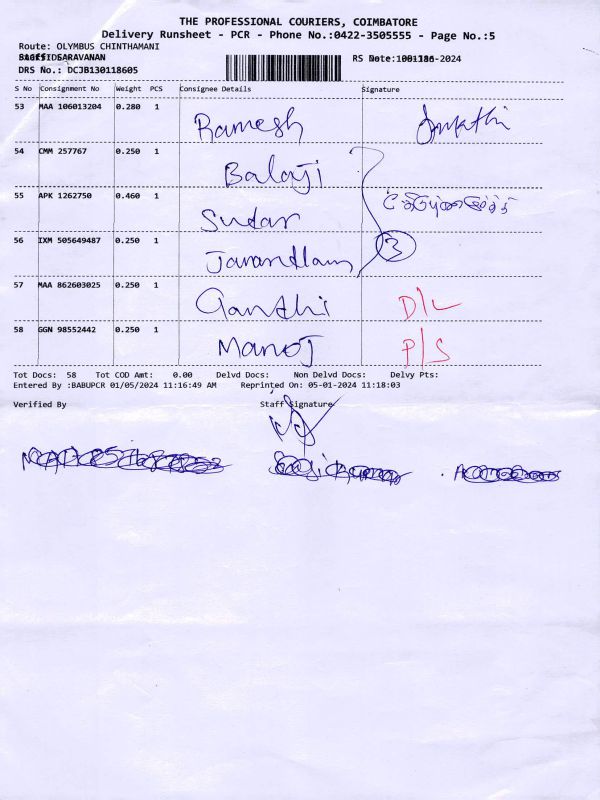 THE PROFESSIONAL COURIERS, COIMBATORE
Delivery Runsheet - PCR - Phone No.:0422-3505555 - Page No.:5
Route: OLYMBUS CHINTHAMANI
SARAVANAN
RS -2024
DRS No.: DCJB130118605
S No Consignment No Weight PCS Consignee Details Signature
53 MAA 106013204 0.280 1 Ramesh
54 CMM 257767 0.250 1 Balaji
55 APK 1262750 0.460 1 Sudar
56 IXM 505649487 0.250 1 3
57 MAA 862603025 0.250 1 Gandhi D/L
58 GGN 98552442 0.250 1 Manoj P/S
Tot Docs: 58 Tot COD Amt: 0.00 Delvd Docs: Non Delvd Docs: Delvy Pts:
Entered By :BABUPCR 01/05/2024 11:16:49 AM Reprinted On: 05-01-2024 11:18:03
Verified By Staff Signature